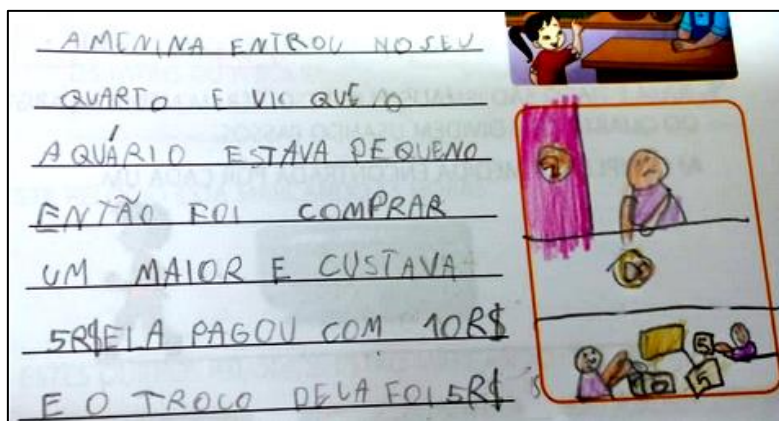 A MENINA ENTROU NO SEU
QUARTO E VIU QUE O
AQUÁRIO ESTAVA PEQUENO
ENTÃO FOI COMPRAR
UM MAIOR E CUSTAVA
5R$ ELA PAGOU COM 10R$
E O TROCO DELA FOI 5R$
10 5 5